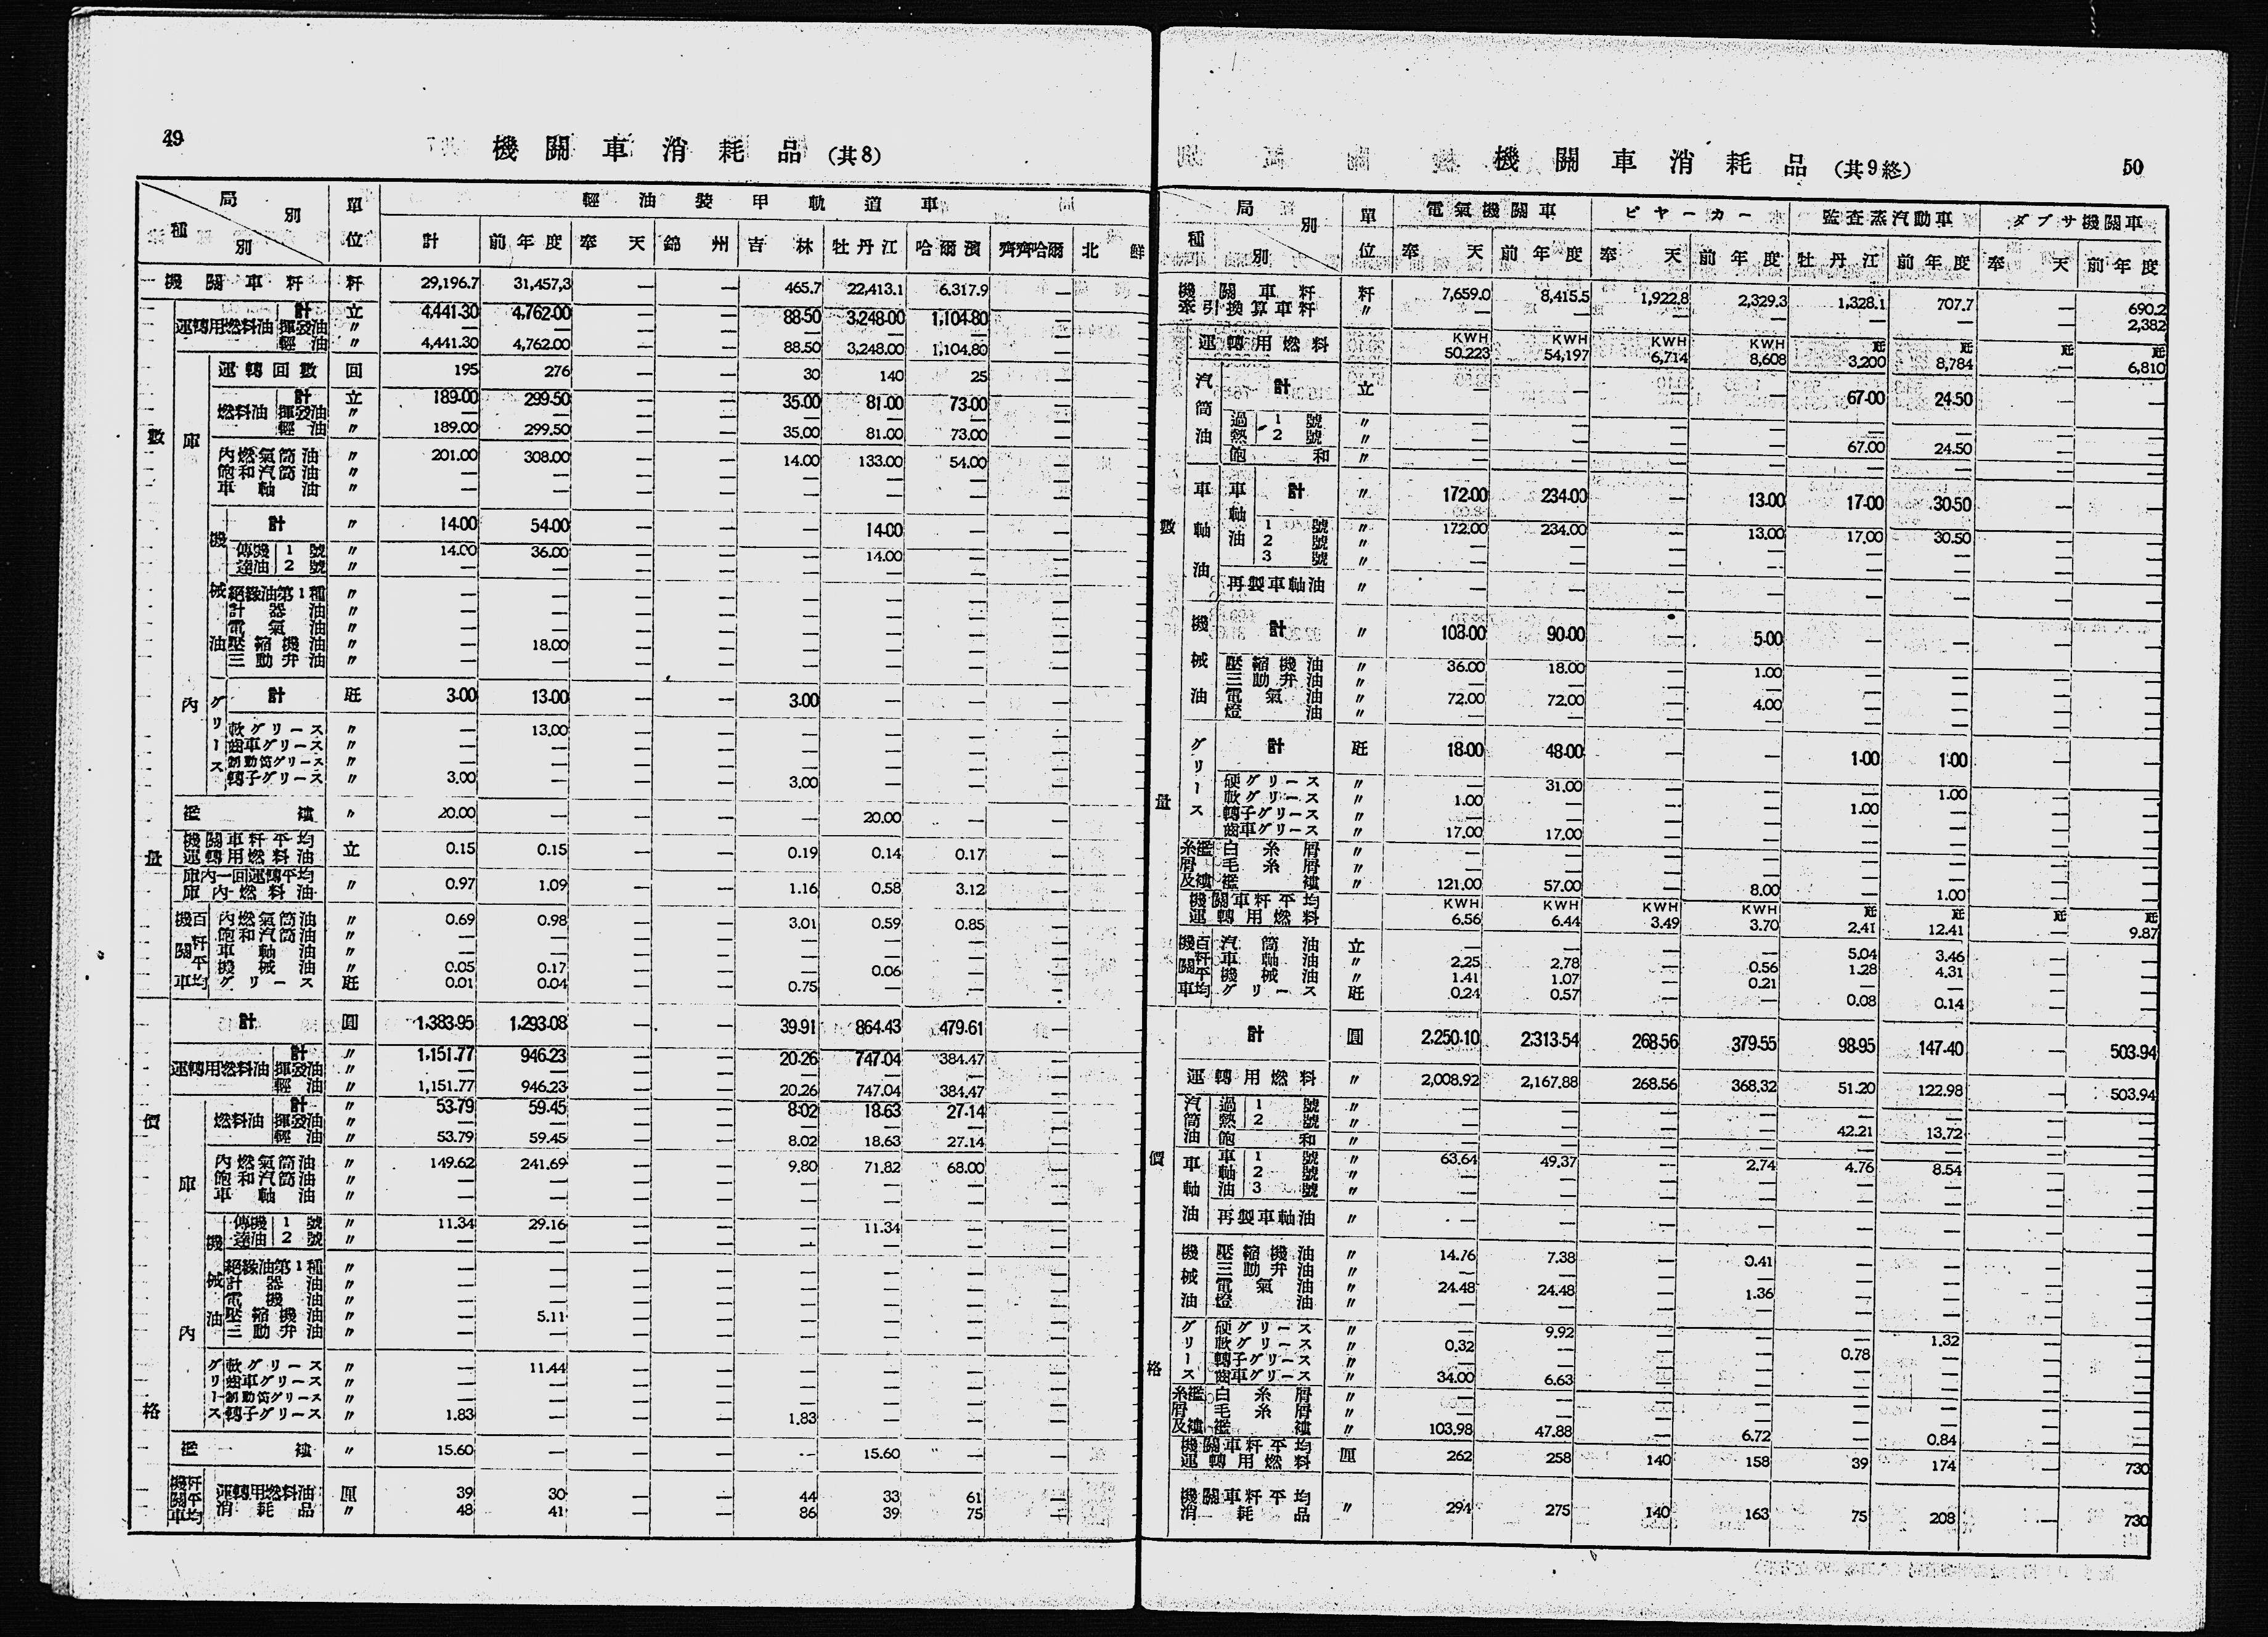 49
機關車消耗品(共8)
局別 種別 單位 輕油裝甲軌道車
計 前年度 奉天 錦州 吉林 牡丹江 哈爾濱 齊齊哈爾 北鮮
機關車粁 粁 29,196.7 31,457,3 — — 465.7 22,413.1 6,317.9 — —
數量
運轉用燃料油 計 立 4,441.30 4,762.00 — — 88.50 3,248.00 1,104.80 — —
揮發油 〃 — — — — — — — — —
輕油 〃 4,441.30 4,762.00 — — 88.50 3,248.00 1,104.80 — —
庫內
運轉回數 回 195 276 — — 30 140 25 — —
燃料油 計 立 189.00 299.50 — — 35.00 81.00 73.00 — —
揮發油 〃 — — — — — — — — —
輕油 〃 189.00 299.50 — — 35.00 81.00 73.00 — —
內燃氣筒油 〃 201.00 308.00 — — 14.00 133.00 54.00 — —
飽和汽筒油 〃 — — — — — — — — —
車軸油 〃 — — — — — — — — —
機械油 計 〃 14.00 54.00 — — — 14.00 — — —
傳達機油 1號 〃 14.00 36.00 — — — 14.00 — — —
2號 〃 — — — — — — — — —
絕緣油第1種 〃 — — — — — — — — —
計器油 〃 — — — — — — — — —
電氣油 〃 — — — — — — — — —
壓縮機油 〃 — 18.00 — — — — — — —
三動弁油 〃 — — — — — — — — —
グリース 計 瓩 3.00 13.00 — — 3.00 — — — —
軟グリース 〃 — 13.00 — — — — — — —
齒車グリース 〃 — — — — — — — — —
制動筒グリース 〃 — — — — — — — — —
轉子グリース 〃 3.00 — — — 3.00 — — — —
襤褸 〃 20.00 — — — — 20.00 — — —
機關車粁平均運轉用燃料油 立 0.15 0.15 — — 0.19 0.14 0.17 — —
庫內一回運轉平均庫內燃料油 〃 0.97 1.09 — — 1.16 0.58 3.12 — —
機關車百粁平均
內燃氣筒油 〃 0.69 0.98 — — 3.01 0.59 0.85 — —
飽和汽筒油 〃 — — — — — — — — —
車軸油 〃 — — — — — — — — —
機械油 〃 0.05 0.17 — — — 0.06 — — —
グリース 瓩 0.01 0.04 — — 0.75 — — — —
價格
計 圓 1,383.95 1,293.08 — — 39.91 864.43 479.61 — —
運轉用燃料油 計 〃 1,151.77 946.23 — — 20.26 747.04 384.47 — —
揮發油 〃 — — — — — — — — —
輕油 〃 1,151.77 946.23 — — 20.26 747.04 384.47 — —
庫內
燃料油 計 〃 53.79 59.45 — — 8.02 18.63 27.14 — —
揮發油 〃 — — — — — — — — —
輕油 〃 53.79 59.45 — — 8.02 18.63 27.14 — —
內燃氣筒油 〃 149.62 241.69 — — 9.80 71.82 68.00 — —
飽和汽筒油 〃 — — — — — — — — —
車軸油 〃 — — — — — — — — —
機械油 傳達機油 1號 〃 11.34 29.16 — — — 11.34 — — —
2號 〃 — — — — — — — — —
絕緣油第1種 〃 — — — — — — — — —
計器油 〃 — — — — — — — — —
電機油 〃 — — — — — — — — —
壓縮機油 〃 — 5.11 — — — — — — —
三動弁油 〃 — — — — — — — — —
グリース 軟グリース 〃 — 11.44 — — — — — — —
齒車グリース 〃 — — — — — — — — —
制動筒グリース 〃 — — — — — — — — —
轉子グリース 〃 1.83 — — — 1.83 — — — —
襤褸 〃 15.60 — — — — 15.60 — — —
機關車粁平均 運轉用燃料油 厘 39 30 — — 44 33 61 — —
消耗品 〃 48 41 — — 86 39 75 — —
機關車消耗品(共9終)
50
局別 種別 單位 電氣機關車 ピヤーカー 監査蒸汽動車 ダブサ機關車
奉天 前年度 奉天 前年度 牡丹江 前年度 奉天 前年度
機關車粁 粁 7,659.0 8,415.5 1,922.8 2,329.3 1,328.1 707.7 — 690.2
牽引換算車粁 〃 — — — — — — — 2,382
數量
運轉用燃料 KWH 50,223 KWH 54,197 KWH 6,714 KWH 8,608 瓩 3,200 瓩 8,784 瓩 — 瓩 6,810
汽筒油 計 立 — — — — 67.00 24.50 — —
過熱 1號 〃 — — — — — — — —
2號 〃 — — — — 67.00 24.50 — —
飽和 〃 — — — — — — — —
車軸油 車軸油 計 〃 172.00 234.00 — 13.00 17.00 30.50 — —
1號 〃 172.00 234.00 — 13.00 17.00 30.50 — —
2號 〃 — — — — — — — —
3號 〃 — — — — — — — —
再製車軸油 〃 — — — — — — — —
機械油 計 〃 108.00 90.00 — 5.00 — — — —
壓縮機油 〃 36.00 18.00 — 1.00 — — — —
三動弁油 〃 — — — — — — — —
電氣油 〃 72.00 72.00 — 4.00 — — — —
燈油 〃 — — — — — — — —
グリース 計 瓩 18.00 48.00 — — 1.00 1.00 — —
硬グリース 〃 — 31.00 — — — 1.00 — —
軟グリース 〃 1.00 — — — 1.00 — — —
轉子グリース 〃 — — — — — — — —
齒車グリース 〃 17.00 17.00 — — — — — —
糸屑及襤褸 白糸屑 〃 — — — — — — — —
毛糸屑 〃 — — — — — — — —
襤褸 〃 121.00 57.00 — 8.00 — 1.00 — —
機關車粁平均運轉用燃料 KWH 6.56 KWH 6.44 KWH 3.49 KWH 3.70 瓩 2.41 瓩 12.41 瓩 — 瓩 9.87
機關車百粁平均
汽筒油 立 — — — — 5.04 3.46 — —
車軸油 〃 2.25 2.78 — 0.56 1.28 4.31 — —
機械油 〃 1.41 1.07 — 0.21 — — — —
グリース 瓩 0.24 0.57 — — 0.08 0.14 — —
價格
計 圓 2,250.10 2,313.54 268.56 379.55 98.95 147.40 — 503.94
運轉用燃料 〃 2,008.92 2,167.88 268.56 368.32 51.20 122.98 — 503.94
汽筒油 過熱 1號 〃 — — — — — — — —
2號 〃 — — — — 42.21 13.72 — —
飽和 〃 — — — — — — — —
車軸油 車軸油 1號 〃 63.64 49.37 — 2.74 4.76 8.54 — —
2號 〃 — — — — — — — —
3號 〃 — — — — — — — —
再製車軸油 〃 — — — — — — — —
機械油 壓縮機油 〃 14.76 7.38 — 0.41 — — — —
三動弁油 〃 — — — — — — — —
電氣油 〃 24.48 24.48 — 1.36 — — — —
燈油 〃 — — — — — — — —
グリース 硬グリース 〃 — 9.92 — — — 1.32 — —
軟グリース 〃 0.32 — — — 0.78 — — —
轉子グリース 〃 — — — — — — — —
齒車グリース 〃 34.00 6.63 — — — — — —
糸屑及襤褸 白糸屑 〃 — — — — — — — —
毛糸屑 〃 — — — — — — — —
襤褸 〃 103.98 47.88 — 6.72 — 0.84 — —
機關車粁平均運轉用燃料 厘 262 258 140 158 39 174 — 730
機關車粁平均消耗品 〃 294 275 140 163 75 208 — 730